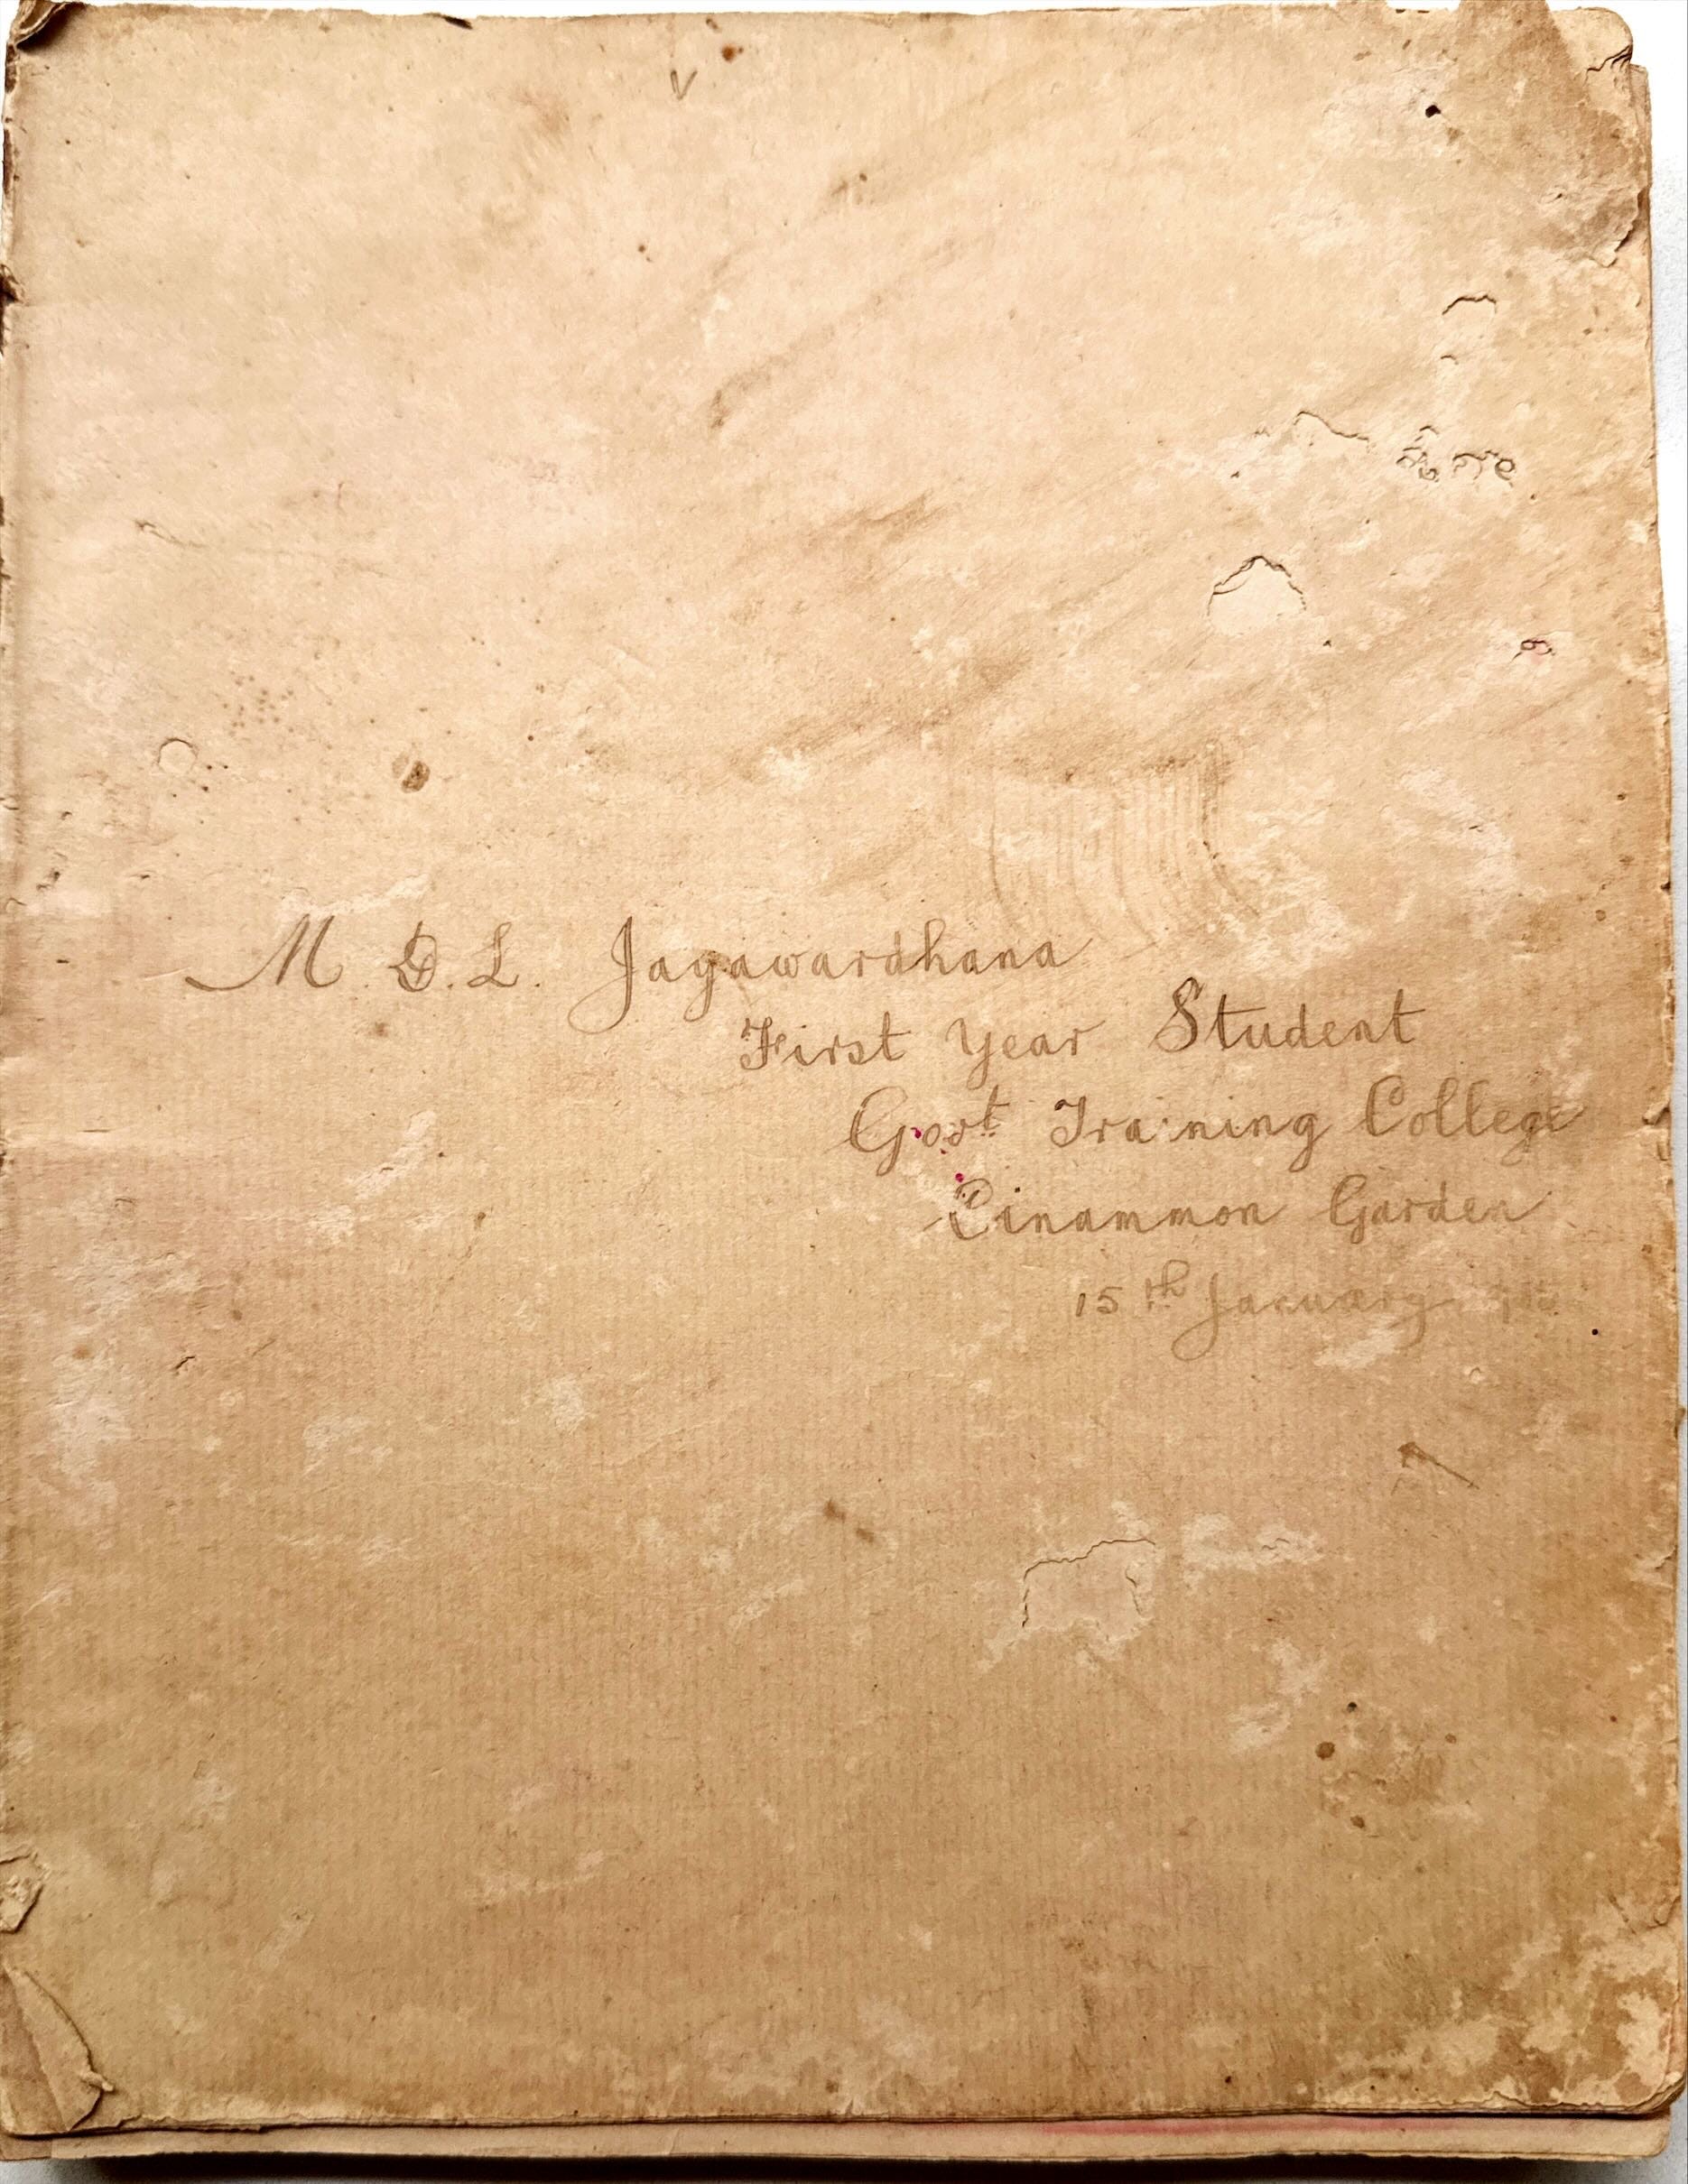 M. D. L. Jayawardhana
First Year Student
Govt Training College
Cinammon Garden
15th January